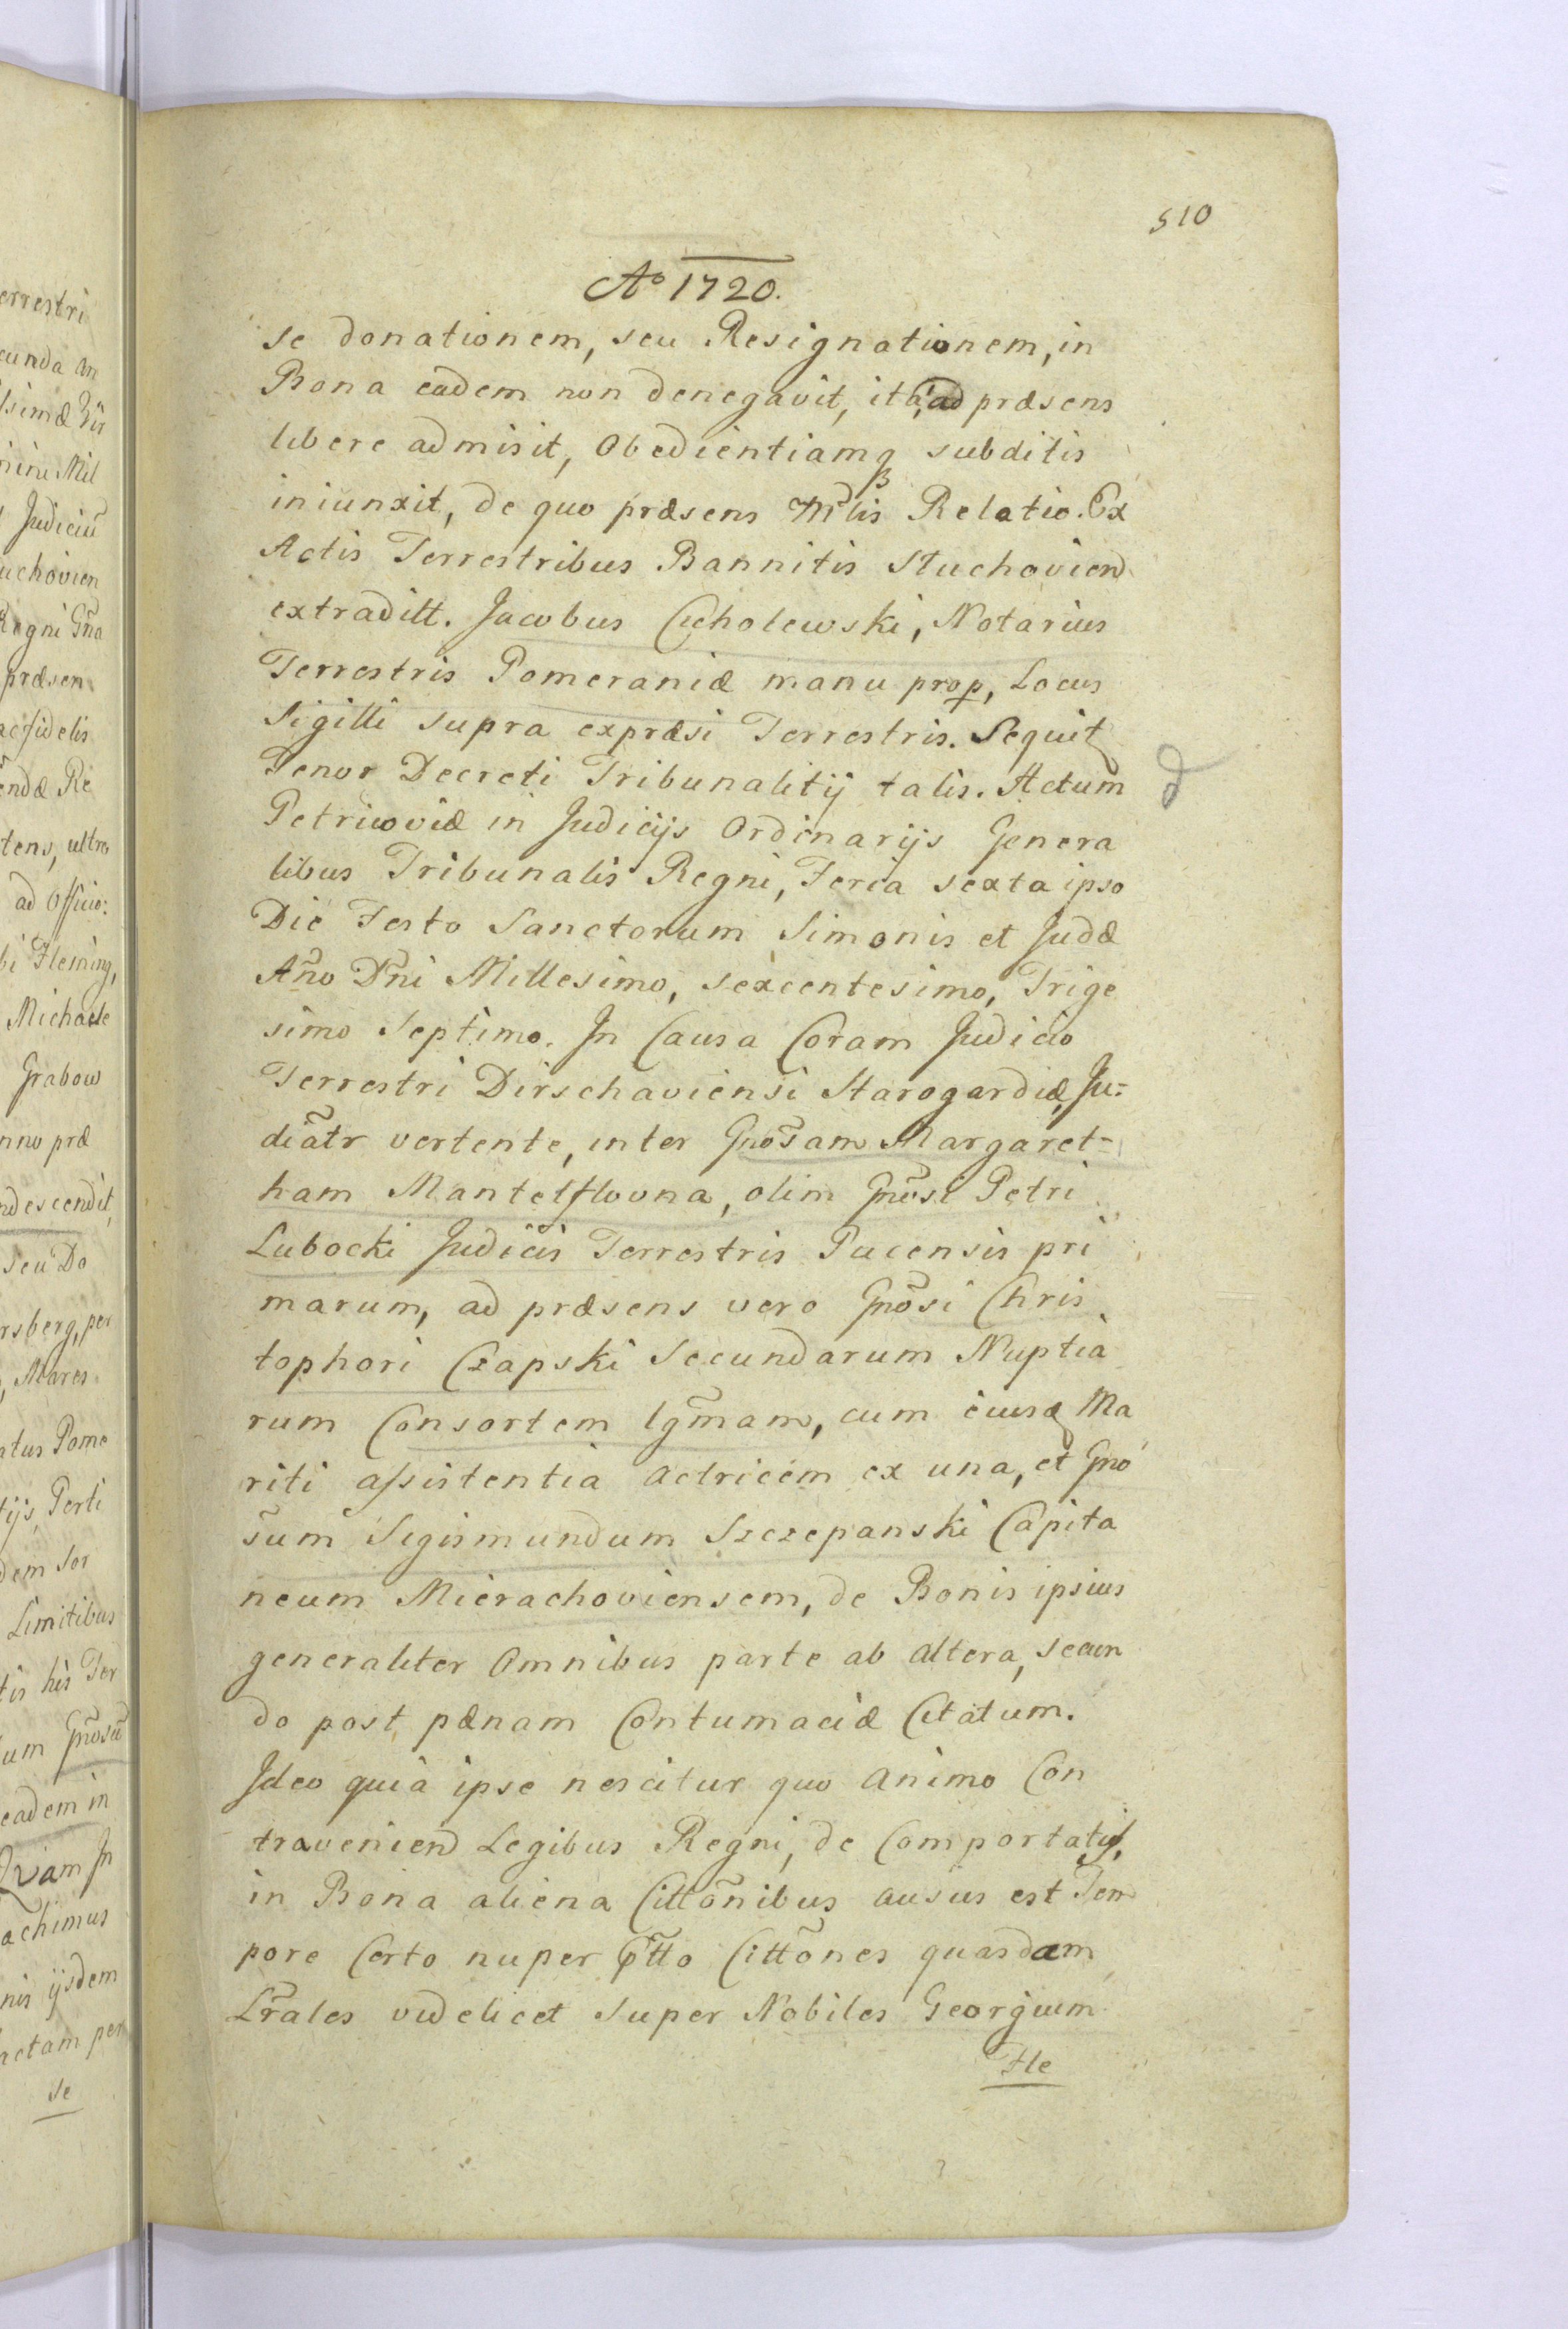 510
Aº 1720.
se donationem, seu Resignationem, in
Bona eadem non denegavit, ita, ad præsens
libere admisit, Obedientiamq subditis
iniunxit, de quo præsens Mlis Relatio. Ex
Actis Terrestribus Bannitis Stuchovien
extraditt. Jacobus Cicholewski, Notarius
Terrestris Pomeraniæ manu prop, Locus
Sigilli supra expræsi Terrestris. Sequit
Tenor Decreti Tribunalitij talis. Actum
Petricoviæ in Judicijs Ordinarijs Genera
libus Tribunalis Regni, Feria sexta ipso
Die Festo Sanctorum Simonis et Judæ
Año Dñi Millesimo, sexcentesimo, Trige
simo Septimo. In Causa Coram Judicio
Terrestri Dirschaviensi Starogardiæ, Ju=
diãtr vertente, inter Gnõsam Margaret=
ham Mantelflovna, olim Gnõsi Petri
Lubocki Judicis Terrestris Pucensis pri
marum, ad præsens vero Gnõsi Chris
tophori Czapski Secundarum Nuptia
rum Consortem lgm̃am, cum eiusd Ma
riti assistentia Actricem ex una, et Gno
s̃um Sigismundum Szczepanski Capita
neum Mierachoviensem, de Bonis ipsius
generaliter Omnibus parte ab altera, secun
do post pænam Contumaciæ Citatum.
Ideo quia ipse nescitur quo animo Con
travenien Legibus Regni, de Comportatis,
in Bona aliena Cittõnibus ausus est Tem
pore Certo nuper p̃tto Cittõnes quasdam
Lr̃ales videlicet Super Nobiles Georgium
Fle
erestri
cunda an
Judiciũ
uchovien
Regni Gña
præsen
endæ Re
tens, ultra
ad Officio:
bi Fleming,
Michaele
Grabow
nno præ
ndescendit,
seu Do
rsberg, per
, Mares
atus Pome
tijs, Perti
dem Sor
Limitibus
tis his Ter
um Gnõsũ
eadem in
Qvam In
achimus
nis ijsdem
actam per
se